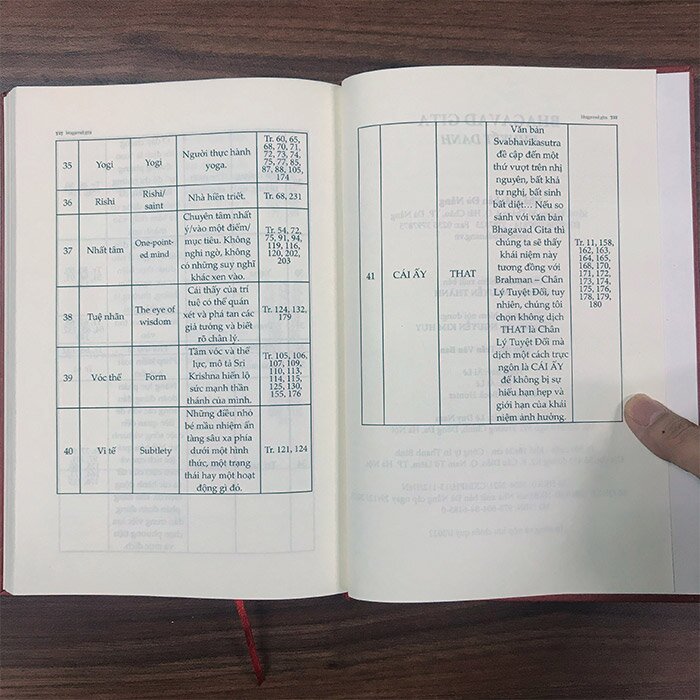 35
Yogi
Yogi
Người thực hành
yoga.
Tr. 60, 65,
68, 70, 71,
72, 73, 74,
75, 77, 85,
87, 88, 105,
174
36
Rishi
Rishi/
saint
Nhà hiền triết.
Tr. 68, 231
37
Nhất tâm
One-point-
ed mind
Chuyên tâm nhất
ý/vào một điểm/
mục tiêu. Không
nghi ngờ, không
có những suy nghĩ
khác xen vào.
Tr. 54, 72,
75, 91, 94,
119, 116,
120, 202,
203
38
Tuệ nhãn
The eye of
wisdom
Cái thấy của trí
tuệ có thể quán
xét và phá tan các
giả tướng và biết
rõ chân lý.
Tr. 124, 132,
179
39
Vóc thể
Form
Tầm vóc và thể
lực, mô tả Sri
Krishna hiển lộ
sức mạnh thần
thánh của mình.
Tr. 105, 106,
107, 109,
110, 113,
114, 115,
125, 130,
155, 176
40
Vi tế
Subtlety
Những điều nhỏ
bé mầu nhiệm ẩn
tàng sâu xa phía
dưới một hình
thức, một trạng
thái hay một hoạt
động gì đó.
Tr. 121, 124
41
CÁI ẤY
THAT
Văn bản
Svabhavikasutra
đề cập đến một
thứ vượt trên nhị
nguyên, bất khả
tư nghị, bất sinh
bất diệt... Nếu so
sánh với văn bản
Bhagavad Gita thì
chúng ta sẽ thấy
khái niệm này
tương đồng với
Brahman – Chân
Lý Tuyệt Đối, tuy
nhiên, chúng tôi
chọn không dịch
THAT là Chân
Lý Tuyệt Đối mà
dịch một cách trực
ngôn là CÁI ẤY
để không bị sự
hiểu hạn hẹp và
giới hạn của khái
niệm ảnh hưởng.
Tr. 11, 158,
162, 163,
164, 165,
168, 170,
171, 172,
173, 174,
175, 176,
178, 179,
180